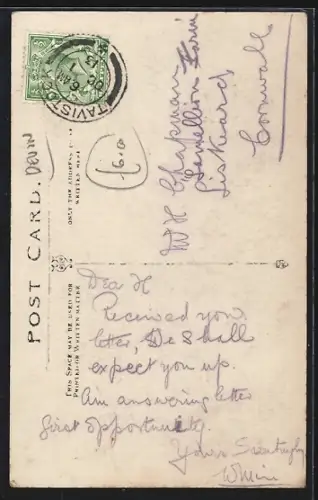 POST CARD.
DEVON
THIS SPACE MAY BE USED FOR
PRINTED OR WRITTEN MATTER
ONLY THE ADDRESS TO BE
WRITTEN HERE
TAVISTOCK
£6.0
W H Chapman
Lamellion Farm
Liskeard
Cornwall
Dear H
Received your
letter, We shall
expect you up.
Am answering letter
first opportunity
Yours